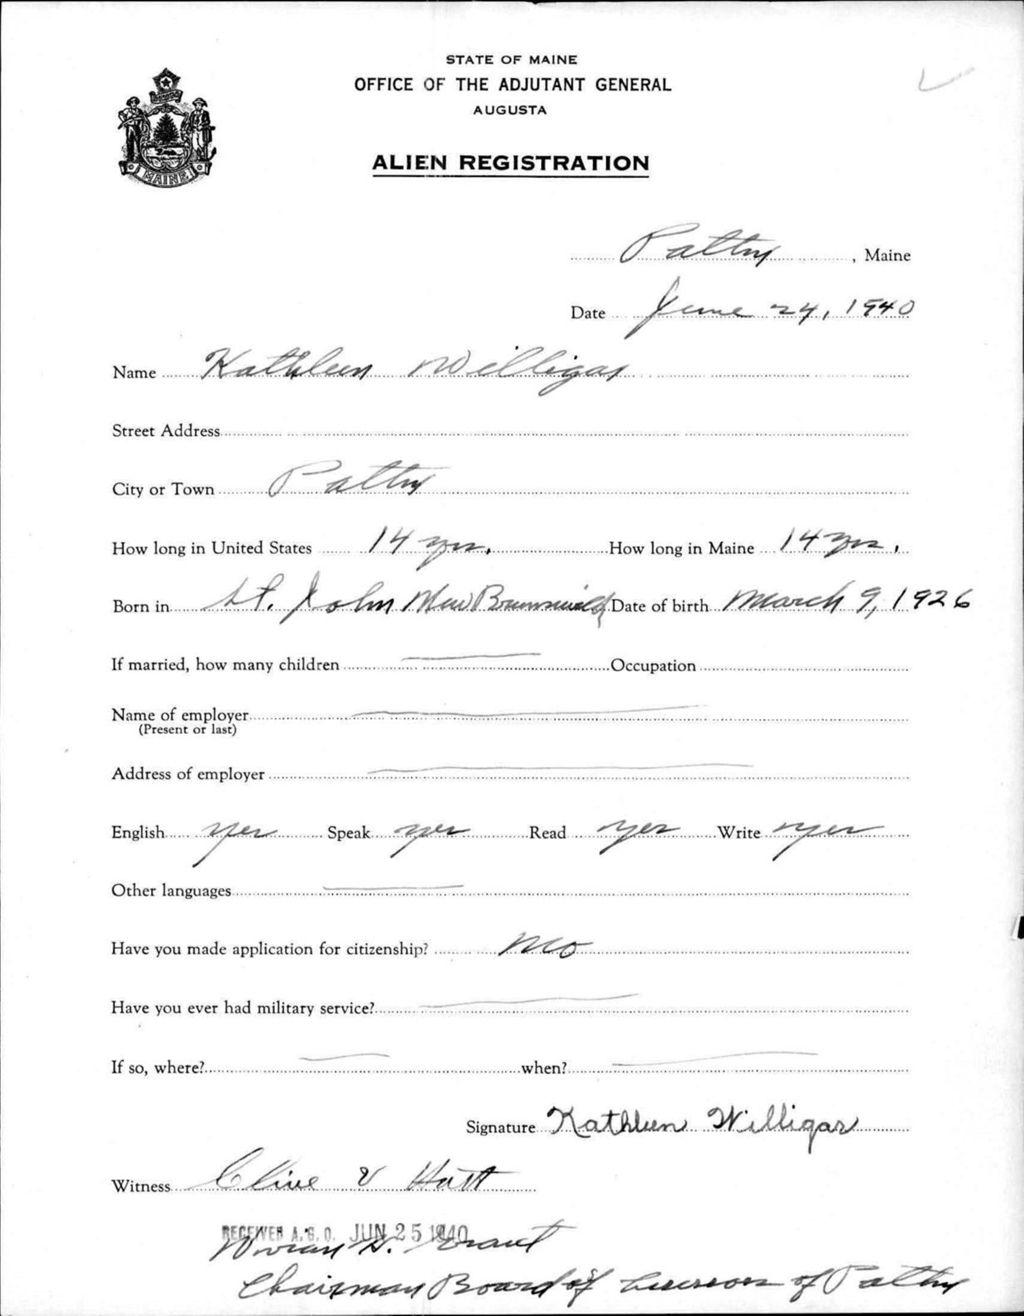 STATE OF MAINE
OFFICE OF THE ADJUTANT GENERAL
AUGUSTA
ALIEN REGISTRATION
MAINE
Patten, Maine
Date June 24, 1940
Name Kathleen Willigar
Street Address
City or Town Patten
How long in United States 14 yrs. How long in Maine 14 yrs.
Born in St. John New Brunswick Date of birth March 9, 1926
If married, how many children Occupation
Name of employer
(Present or last)
Address of employer
English yes Speak yes Read yes Write yes
Other languages
Have you made application for citizenship? no
Have you ever had military service?
If so, where? when?
Signature Kathleen Willigar
Witness Clive V Hatt
RECEIVED A.G.O. JUN 25 1940
Grant
Chairman Board of of Patten